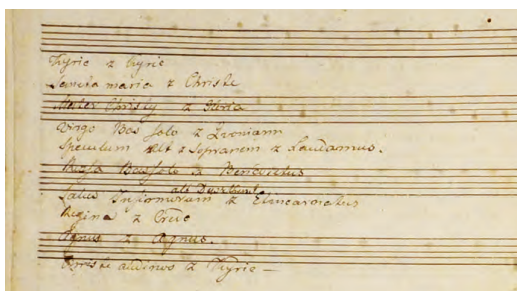 Kyrie z Kyrie
Sancta maria z Christe
Mater Christy z Gloria
Virgo Bas Solo z
Speculum Alt z Sopranem z Laudamus.
Rosa Bas Solo z Benedictus
alt Duetum
Salus Infirmorum z Etincarnatus
Regina z Cruc
Agnus z Agnus.
Christe audinos z Kyrie —